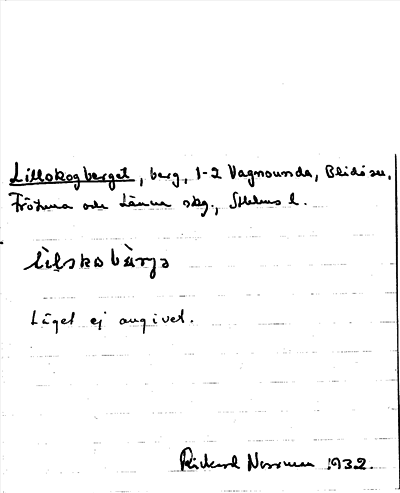 Lillskogberget, berg, 1-2 Vagnsunda, Blidö sn,
Frötuna och Länna skg., Sthlms l.
Läget ej angivet.
Rickard Norrman 1932.